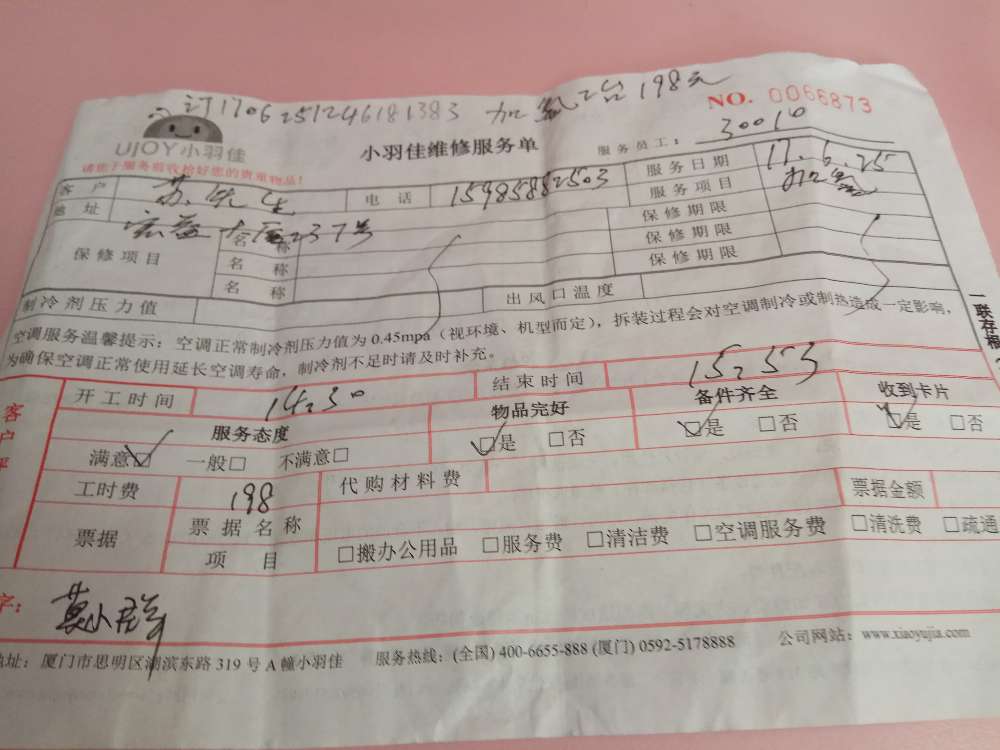 订170625124618 1383 加氟2台198元
NO. 0066873
UJOY小羽佳
小羽佳维修服务单
服务员工: 30010
请您于服务前收拾好您的贵重物品!
客户 苏先生 电话 15985882503 服务日期 17.6.25
地址 宏益大厦237号 服务项目 加氟
保修项目 名称 保修期限
名称 保修期限
名称 保修期限
制冷剂压力值 出风口温度
空调服务温馨提示: 空调正常制冷剂压力值为 0.45mpa (视环境、机型而定), 拆装过程会对空调制冷或制热造成一定影响,
为确保空调正常使用延长空调寿命, 制冷剂不足时请及时补充。
一联存根
开工时间 14:30 结束时间 15:53
服务态度 物品完好 备件齐全 收到卡片
满意☑ 一般□ 不满意□ ☑是 □否 ☑是 □否 ☑是 □否
工时费 198 代购材料费 票据金额
票据 票据名称
项目 □搬办公用品 □服务费 □清洁费 □空调服务费 □清洗费 □疏通
客户
字:
地址: 厦门市思明区湖滨东路 319 号 A 幢小羽佳 服务热线: (全国) 400-6655-888 (厦门) 0592-5178888 公司网站: www.xiaoyujia.com